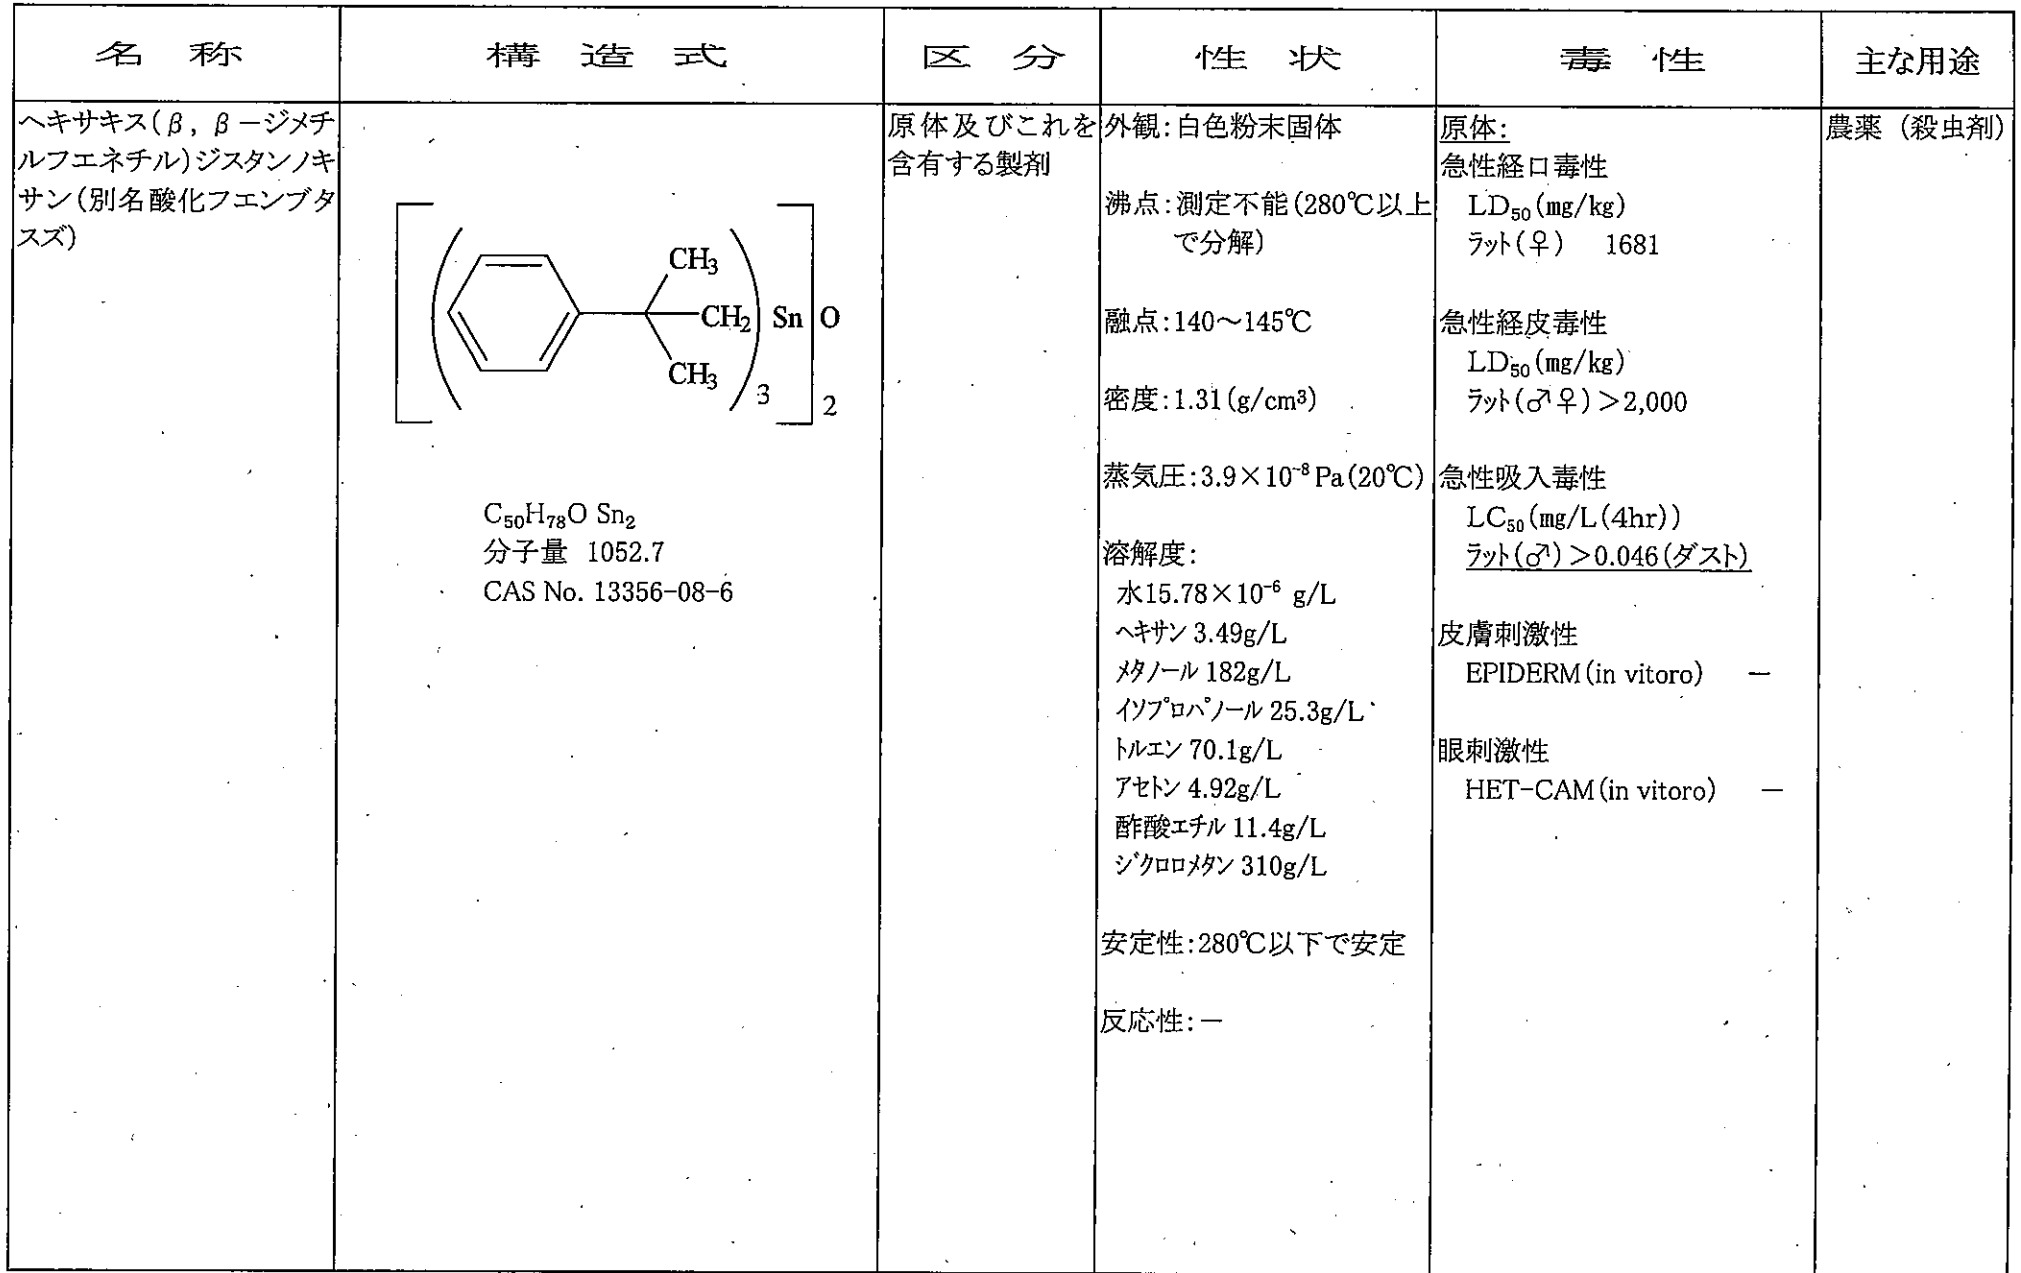 名 称
構 造 式
区 分
性 状
毒 性
主な用途
ヘキサキス(β, β-ジメチ
ルフエネチル)ジスタンノキ
サン(別名酸化フエンブタ
スズ)
CH₃
CH₂
CH₃
3
Sn
2
O
C₅₀H₇₈O Sn₂
分子量 1052.7
CAS No. 13356-08-6
原体及びこれを
含有する製剤
外観:白色粉末固体
沸点:測定不能(280℃以上
で分解)
融点:140～145℃
密度:1.31(g/cm³)
蒸気圧:3.9×10⁻⁸ Pa(20℃)
溶解度:
水15.78×10⁻⁶ g/L
ヘキサン 3.49g/L
メタノール 182g/L
イソプロパノール 25.3g/L
トルエン 70.1g/L
アセトン 4.92g/L
酢酸エチル 11.4g/L
ジクロロメタン 310g/L
安定性:280℃以下で安定
反応性:－
原体:
急性経口毒性
LD₅₀(mg/kg)
ラット(♀) 1681
急性経皮毒性
LD₅₀(mg/kg)
ラット(♂♀)＞2,000
急性吸入毒性
LC₅₀(mg/L(4hr))
ラット(♂)＞0.046(ダスト)
皮膚刺激性
EPIDERM(in vitoro) －
眼刺激性
HET-CAM(in vitoro) －
農薬 (殺虫剤)